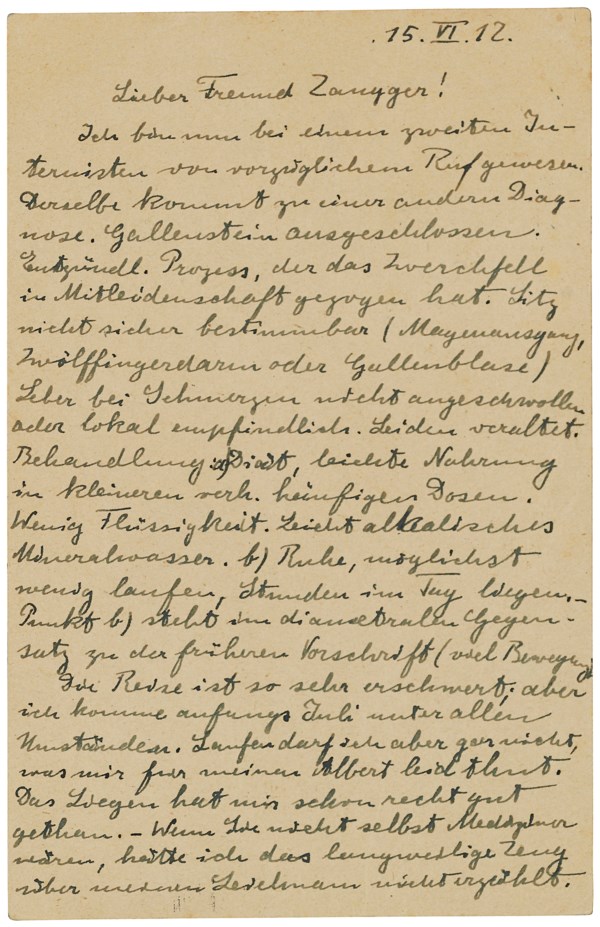 15.VI.12.
Lieber Freund Zangger!
Ich bin nun bei einem zweiten In-
ternisten von vorzüglichem Ruf gewesen.
Derselbe kommt zu einer andern Diag-
nose. Gallenstein ausgeschlossen.
Entzündl. Prozess, der das Zwerchfell
in Mitleidenschaft gezogen hat. Sitz
nicht sicher bestimmbar (Magenausgang,
Zwölffingerdarm oder Gallenblase)
Leber bei Schmerzen nicht angeschwollen
oder lokal empfindlich. Leiden veraltet.
Behandlung: a) Diät, leichte Nahrung
in kleineren verh. häufigen Dosen.
Wenig Flüssigkeit. Leicht alkalisches
Mineralwasser. b) Ruhe, möglichst
wenig laufen, Stunden im Tag liegen. –
Punkt b) steht im diametralen Gegen-
satz zu der früheren Vorschrift (viel Bewegung)
Die Reise ist so sehr erschwert; aber
ich komme anfangs Juli unter allen
Umständen. Laufen darf ich aber gar nicht,
was mir für meinen Albert leid thut.
Das Liegen hat mir schon recht gut
gethan. – Wenn Sie nicht selbst Mediziner
wären, hätte ich das langweilige Zeug
über meinen Leichnam nicht erzählt.